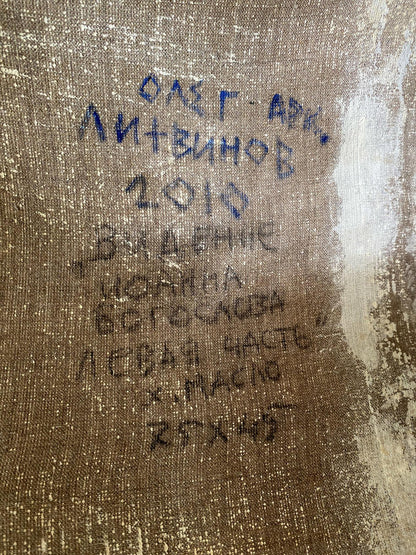 ОЛЕГ АРК.
ЛИТВИНОВ
2010
„ВИДЕНИЕ
ИОАННА
БОГОСЛОВА
ЛЕВАЯ ЧАСТЬ"
Х. МАСЛО
75Х45